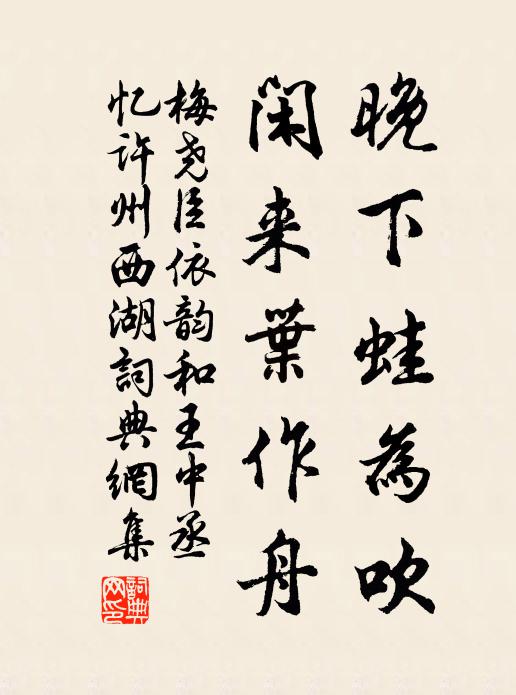 晚下蛙為吹
閑来葉作舟
梅尧臣依韵和王中丞
忆许州西湖詞典網集
詞典網印